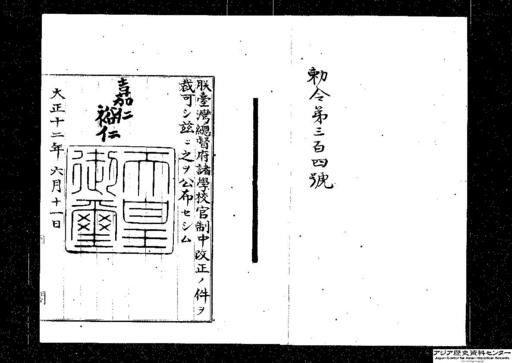 勅令第三百四號
朕臺灣總督府諸學校官制中改正ノ件ヲ
裁可シ茲ニ之ヲ公布セシム
嘉仁
裕仁
天皇
御璽
大正十二年六月十一日
アジア歴史資料センター
Japan Center for Asian Historical Records